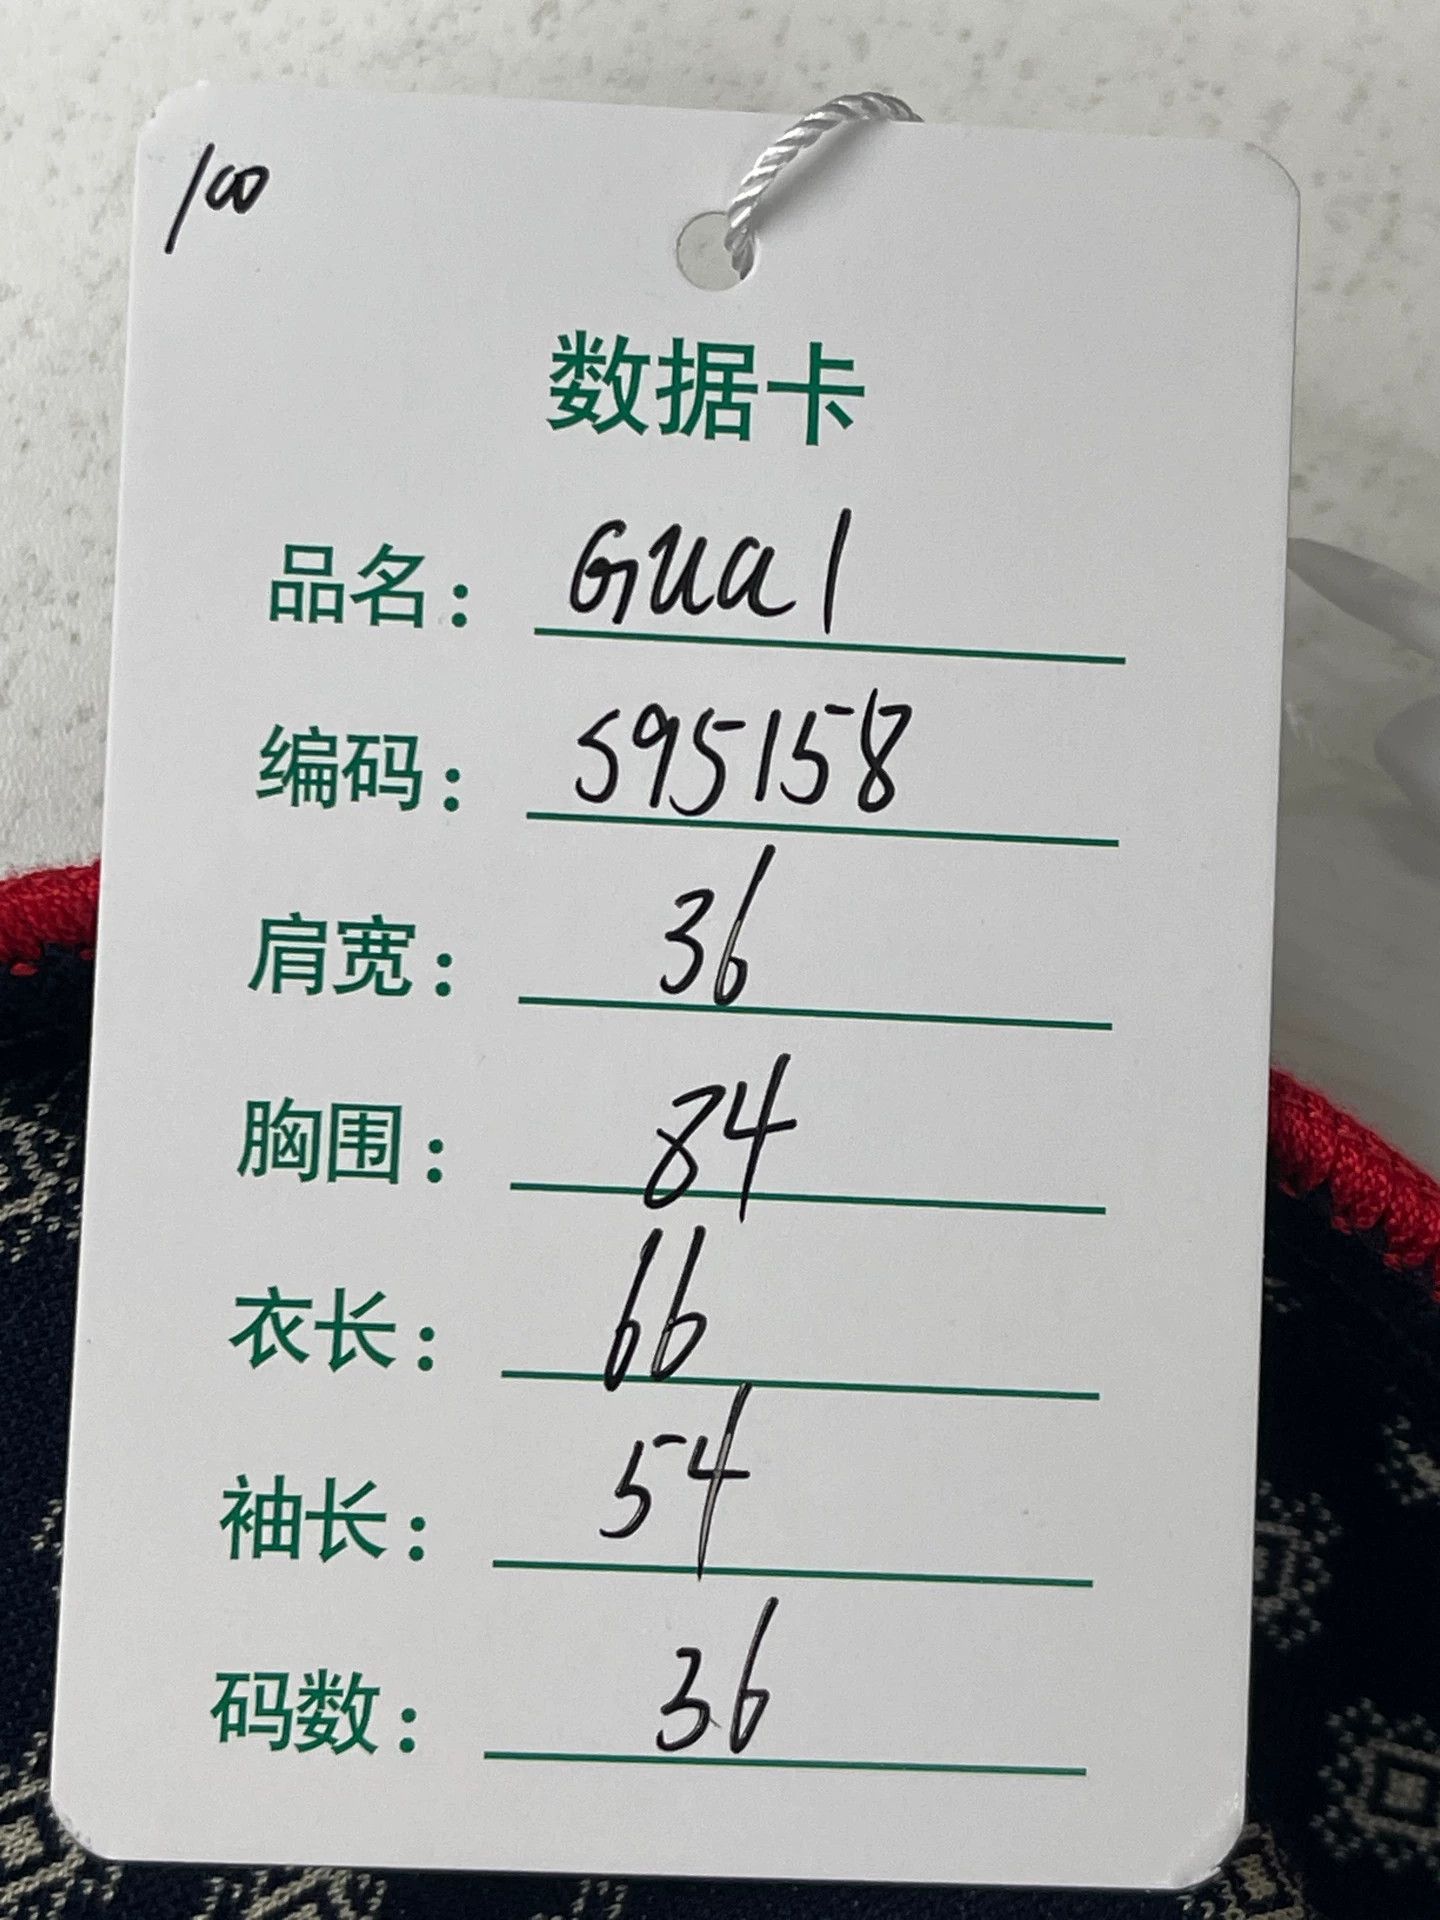 100
数据卡
品名: GUal
编码: 595158
肩宽: 36
胸围: 84
衣长: 66
袖长: 54
码数: 36